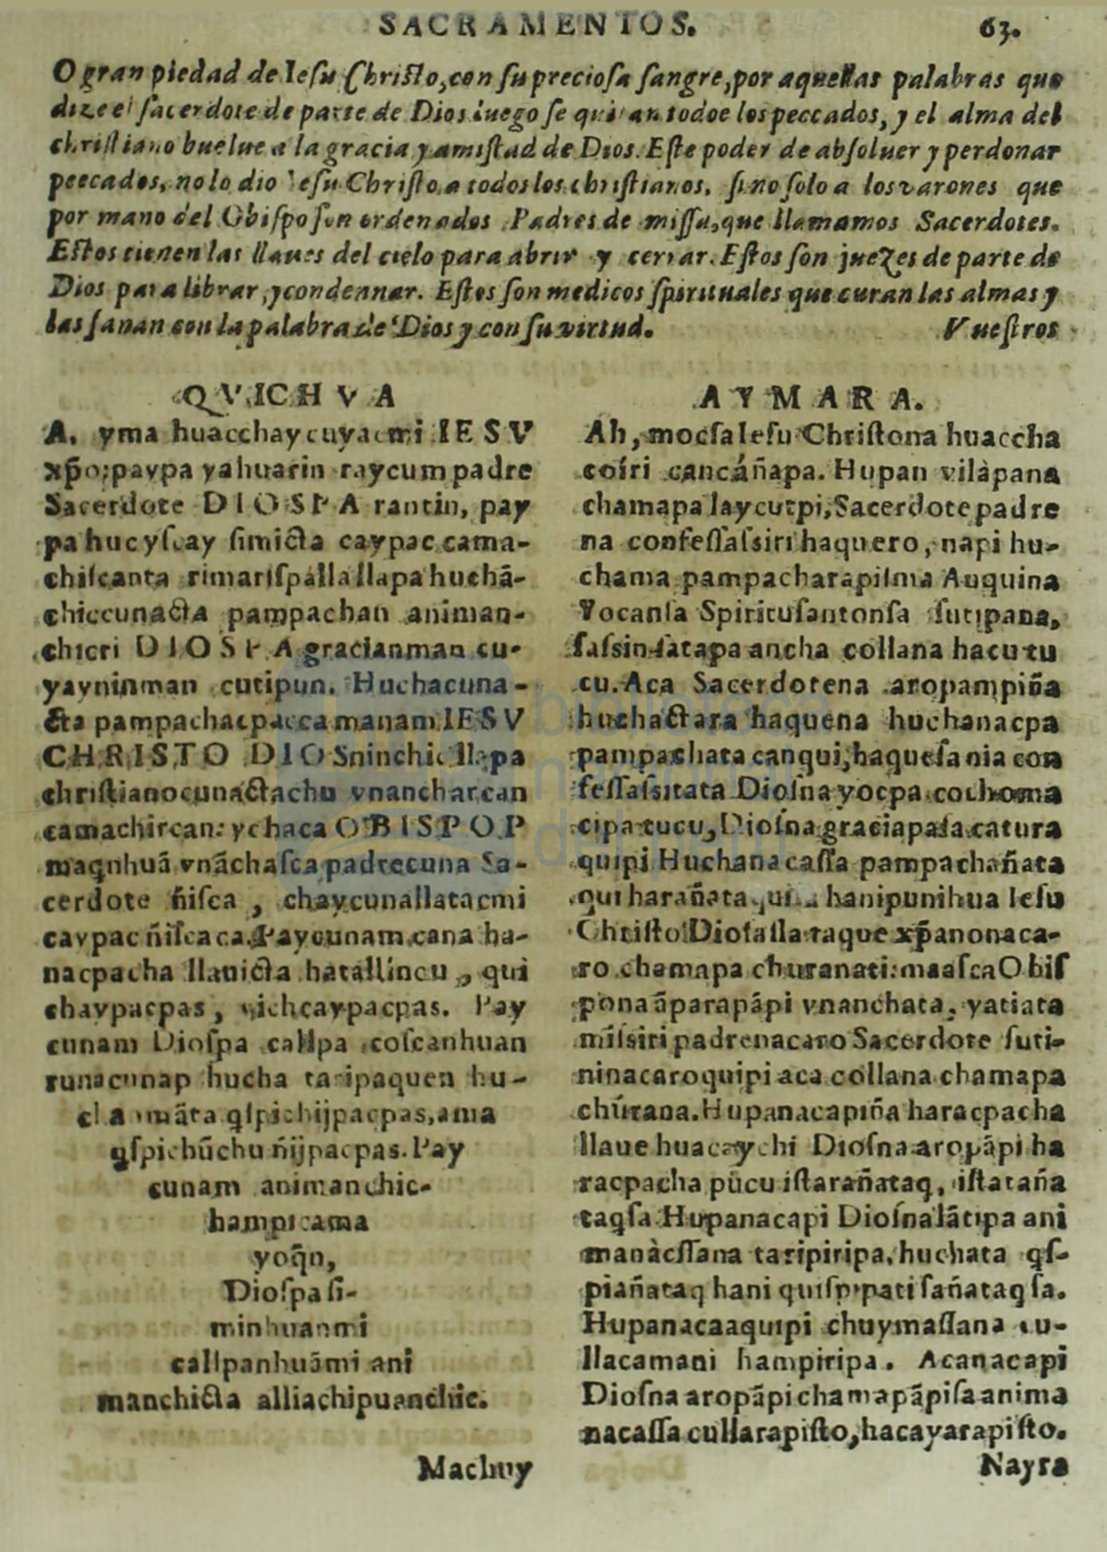 SACRAMENTOS. 63.
O gran piedad de Iesu Christo, con su preciosa sangre, por aquellas palabras que
dize el sacerdote de parte de Dios luego se quitan todoe los peccados, y el alma del
christiano buelue a la gracia y amistad de Dios. Este poder de absoluer y perdonar
peecados, no lo dio Iesu Christo a todos los christianos, sino solo a los varones que
por mano del Obispo son ordenados Padres de missa, que llamamos Sacerdotes.
Estos tienen las llaues del cielo para abrir y cerrar. Estos son juezes de parte de
Dios para librar, y condennar. Estos son medicos spirituales que curan las almas y
las sanan con la palabra de Dios y con su virtud. Vuestros
QVICHVA
A. yma huacchaycuyacmi IESV
xp̃o; paypa yahuarin raycum padre
Sacerdote DIOSPA rantin, pay
pa huc yscay simicta caypac cama-
chiscanta rimarispalla llapa huchã-
chiccunacta pampachan animan-
chicri DIOSPA gracianman cu-
yayninman cutipun. Huchacuna-
cta pampachacpacca manam IESV
CHRISTO DIOSninchic llapa
christianocunactachu vnancharcan
camachircan: ychaca OBISPOP
maqnhuã vnãchasca padrecuna Sa-
cerdote ñisca, chaycunallatacmi
caypac ñiscaca. Paycunam cana ha-
nacpacha llauicta hatallincu, qui
chaypacpas, vichcaypacpas. Pay
cunam Diospa callpa coscanhuan
runacunap hucha taripaquen hu-
chanmãta q̃spichijpacpas, ama
q̃spichũchu ñijpacpas. Pay
cunam animanchic-
hampicama
yoq̃n,
Diospa si-
minhuanmi
callpanhuãmi ani
manchicta alliachipuanchic.
Machuy
AYMARA.
Ah, mocsa Iesu Christona huaccha
coíri cancáñapa. Hupan vilàpana
chamapa laycutpi, Sacerdote padre
na confessassiri haquero, napi hu-
chama pampacharapisma Auquina
Yocansa Spiritusantonsa sutipana,
sassinsatapa ancha collana hacutu
cu. Aca Sacerdotena aropampiña
huchactara haquena huchanacpa
pampachata canqui, haquesa nia con
fessassitata Diosna yocpa cochoma
cipa tucu, Diosna graciapasa catura
quipi Huchanacassa pampachañata
qui harañata hanipunihua Iesu
Christo Diosalla taque xp̃anonaca-
ro chamapa churanati: maasca Obis
pona ãparapãpi vnanchata, yatiata
missiri padrenacaro Sacerdote suti-
ninacaroquipi aca collana chamapa
chúrana. Hupanacapiña haracpacha
llaue huacaychi Diosna aropãpi ha
racpacha pũcu istarañataq, istataña
taq̃sa Hupanacapi Diosna lãtipa ani
manàcssana taripiripa, huchata q̃s-
piañataq hani quispipati sañataq̃sa.
Hupanacaaquipi chuymassana cu-
llacamani hampiripa. Acanacapi
Diosna aropãpi chamapãpisa anima
nacassa cullarapisto, hacayarapisto.
Nayra